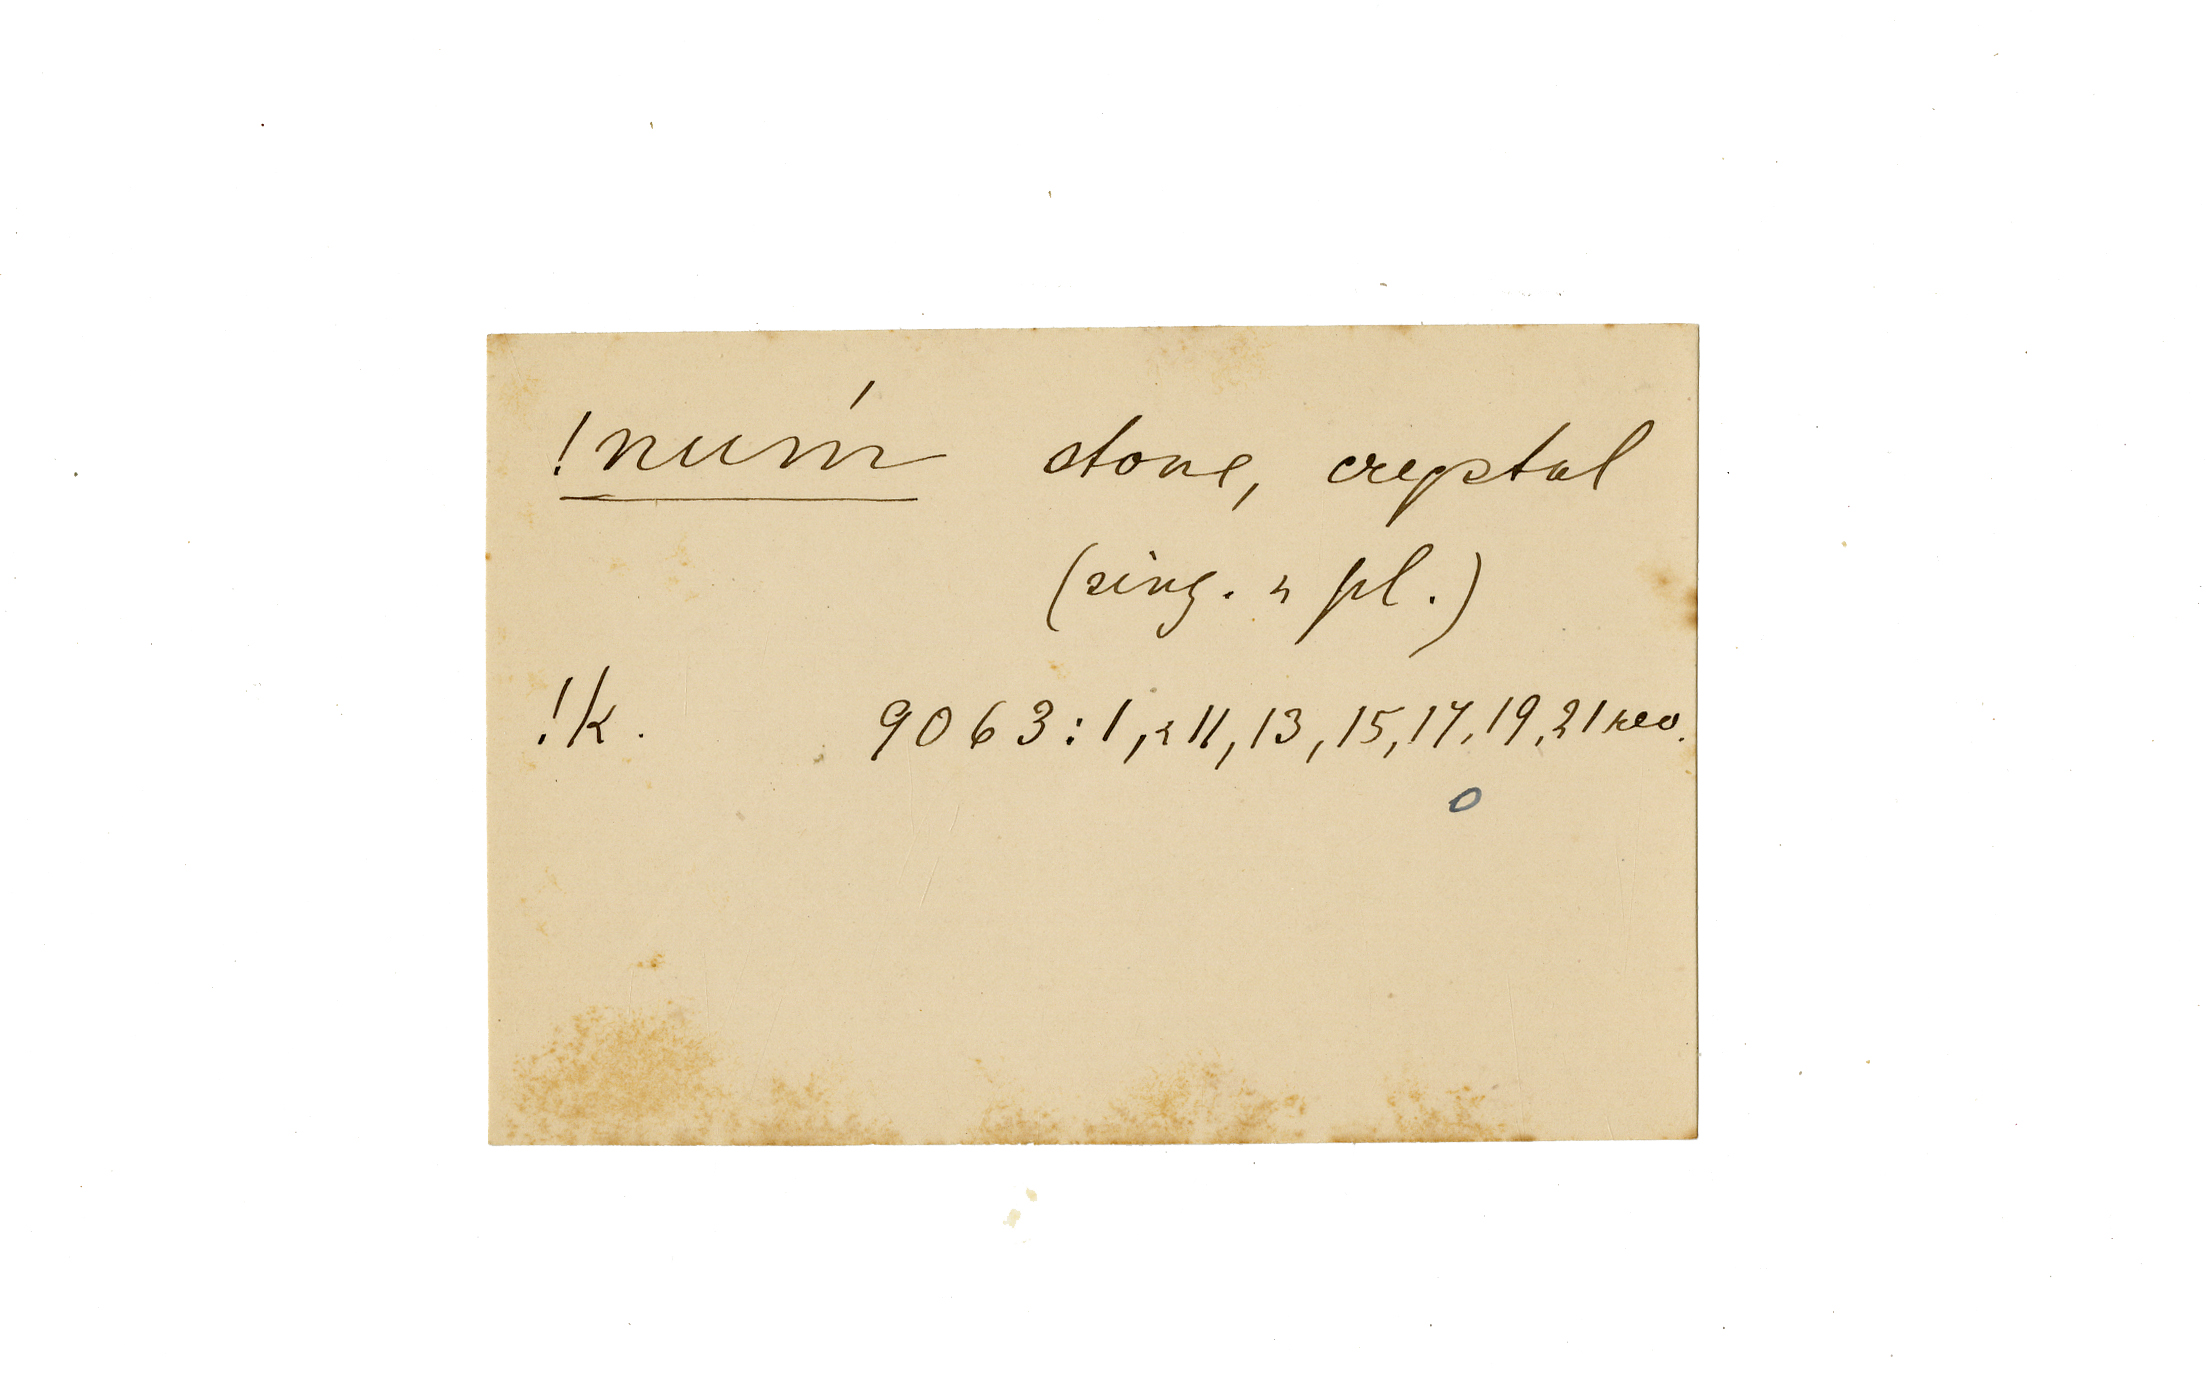 !num̍ stone, crystal
(sing. & pl.)
!k. 9063:1, & 11, 13, 15, 17, 19, 21 rev.
o